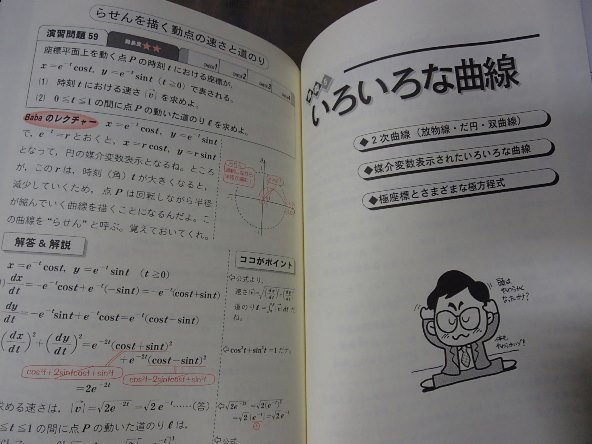 らせんを描く動点の速さと道のり
演習問題 59
難易度 ★★
CHECK 1
CHECK 2
CHECK 3
座標平面上を動く点 P の時刻 t における座標が、
x = e⁻ᵗcost, y = e⁻ᵗsint (t ≧ 0) で表される。
(1) 時刻 t における速さ |v⃗| を求めよ。
(2) 0 ≦ t ≦ 1 の間に点 P の動いた道のり ℓ を求めよ。
Baba のレクチャー x = e⁻ᵗcost, y = e⁻ᵗsint
で、e⁻ᵗ = r とおくと、x = rcost, y = rsint
となって、円の媒介変数表示となるね。ところ
が、この r は、時刻 (角) t が大きくなると、
減少していくため、点 P は回転しながら半径
が縮んでいく曲線を描くことになるんだよ。こ
の曲線を“らせん”と呼ぶ。覚えておいてくれ。
解答 & 解説
ココがポイント
x = e⁻ᵗcost, y = e⁻ᵗsint (t ≧ 0)
dx/dt = -e⁻ᵗcost + e⁻ᵗ(-sint) = -e⁻ᵗ(cost + sint)
dy/dt = -e⁻ᵗsint + e⁻ᵗcost = e⁻ᵗ(cost - sint)
(dx/dt)² + (dy/dt)² = e⁻²ᵗ(cost + sint)²
+ e⁻²ᵗ(cost - sint)²
cos²t + 2sint cost + sin²t
cos²t - 2sint cost + sin²t
= 2e⁻²ᵗ
求める速さは、|v⃗| = √2e⁻²ᵗ = √2 e⁻ᵗ ……(答)
≦ t ≦ 1 の間に点 P の動いた道のり ℓ は、
⇦ 公式より、
⇦ cos²t + sin²t = 1 だ。
⇦ 公式
いろいろな曲線
◆ 2 次曲線 (放物線・だ円・双曲線)
◆ 媒介変数表示されたいろいろな曲線
◆ 極座標とさまざまな極方程式